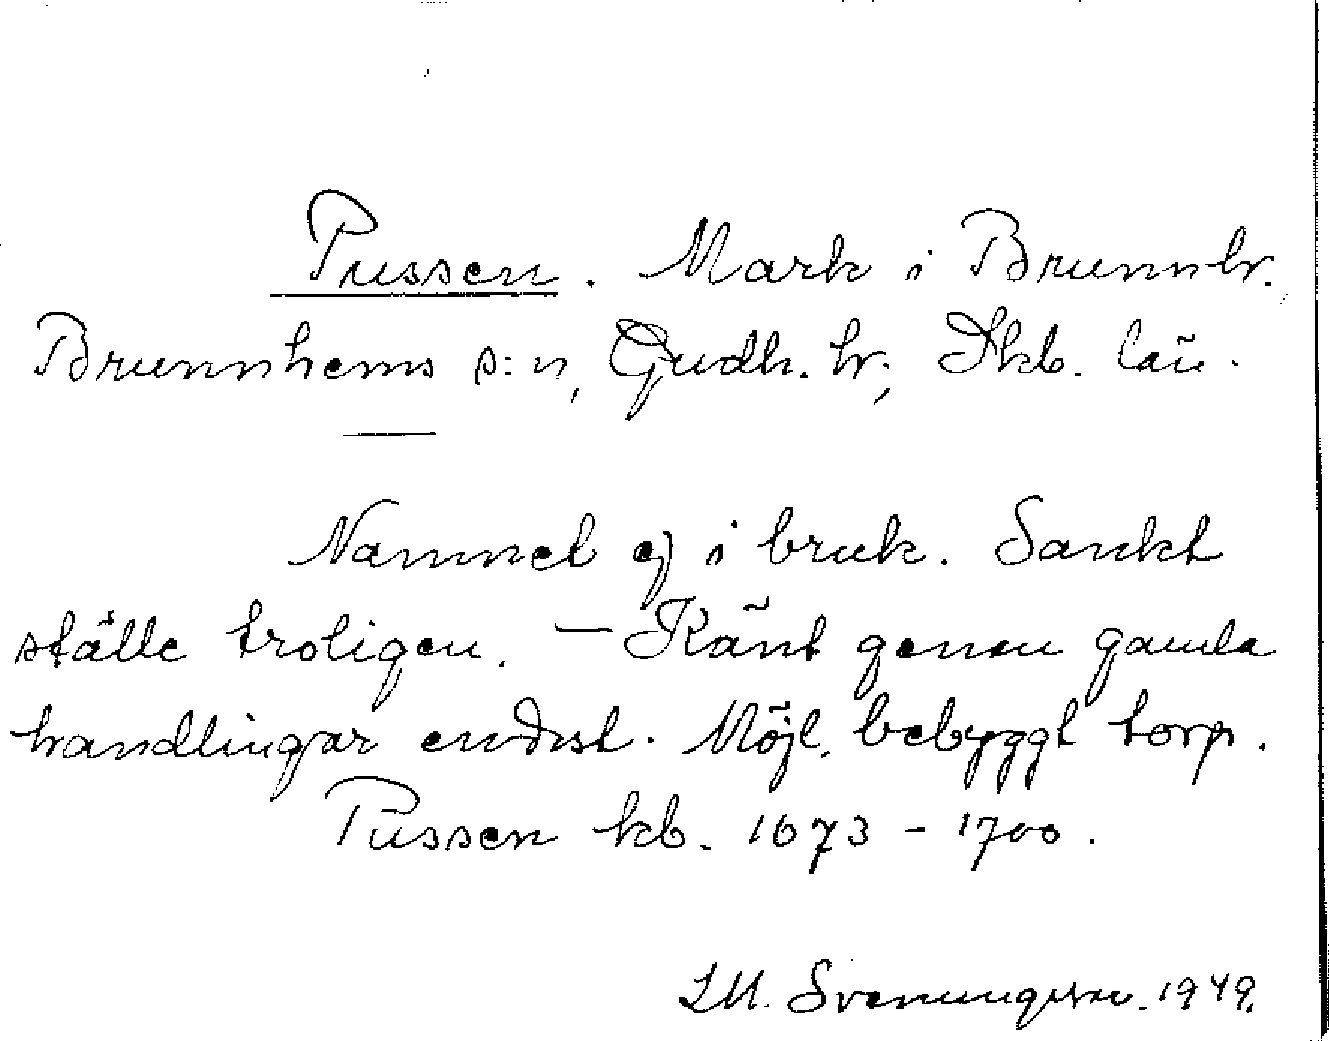 Pussen. Mark i Brunnhr.
Brunnhems s:n, Gudh. hr; Skb. län.
Namnet ej i bruk. Sankt
ställe troligen. – Känt genom gamla
handlingar endast. Möjl. bebyggt torp.
Pussen kb. 1673 – 1700.
Svenungsson. 1949.